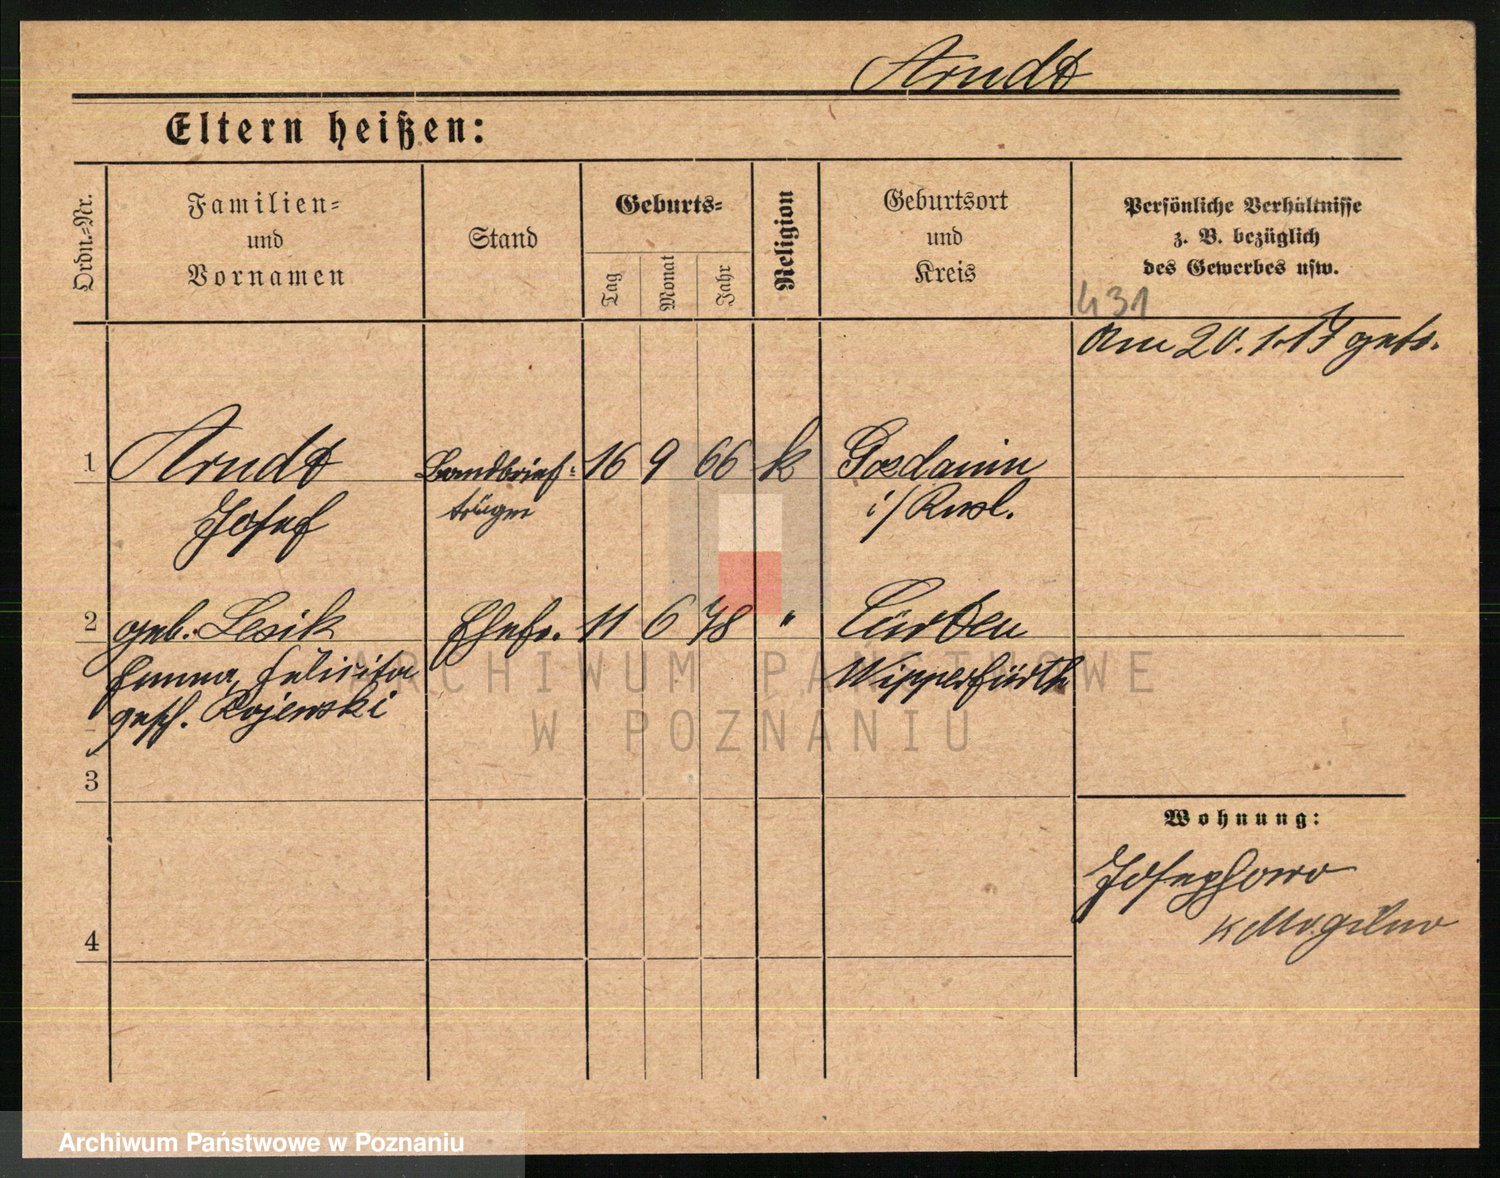 Arndt
Eltern heißen:
Ordn.-Nr.
Familien-
und
Vornamen
Stand
Geburts-
Tag
Monat
Jahr
Religion
Geburtsort
und
Kreis
Persönliche Verhältnisse
z. B. bezüglich
des Gewerbes usw.
431
Am 20.1.17 getr.
1 Arndt Landbrief- 16 9 66 k Gosdanin
Josef träger i/ Russl.
2 geb. Lesik Ehefr. 11 6 78 " Lürken
Emma, Felicita Wipperfürth
gesch. Rojewski
3
Wohnung:
Josephowo
K Mogilno
4
ARCHIWUM PAŃSTWOWE
W POZNANIU
Archiwum Państwowe w Poznaniu